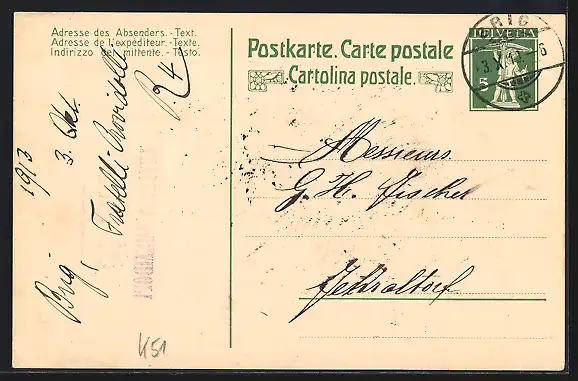 Adresse des Absenders. - Text.
Adresse de l'expéditeur. - Texte.
Indirizzo del mittente. - Testo.
Postkarte. Carte postale
Cartolina postale.
HELVETIA
5
BRIG
3.X.13. 6
Messieurs
G. H. Fischer
Fehraltorf
Brig, 3. Okt. 1913
Fratelli
K51